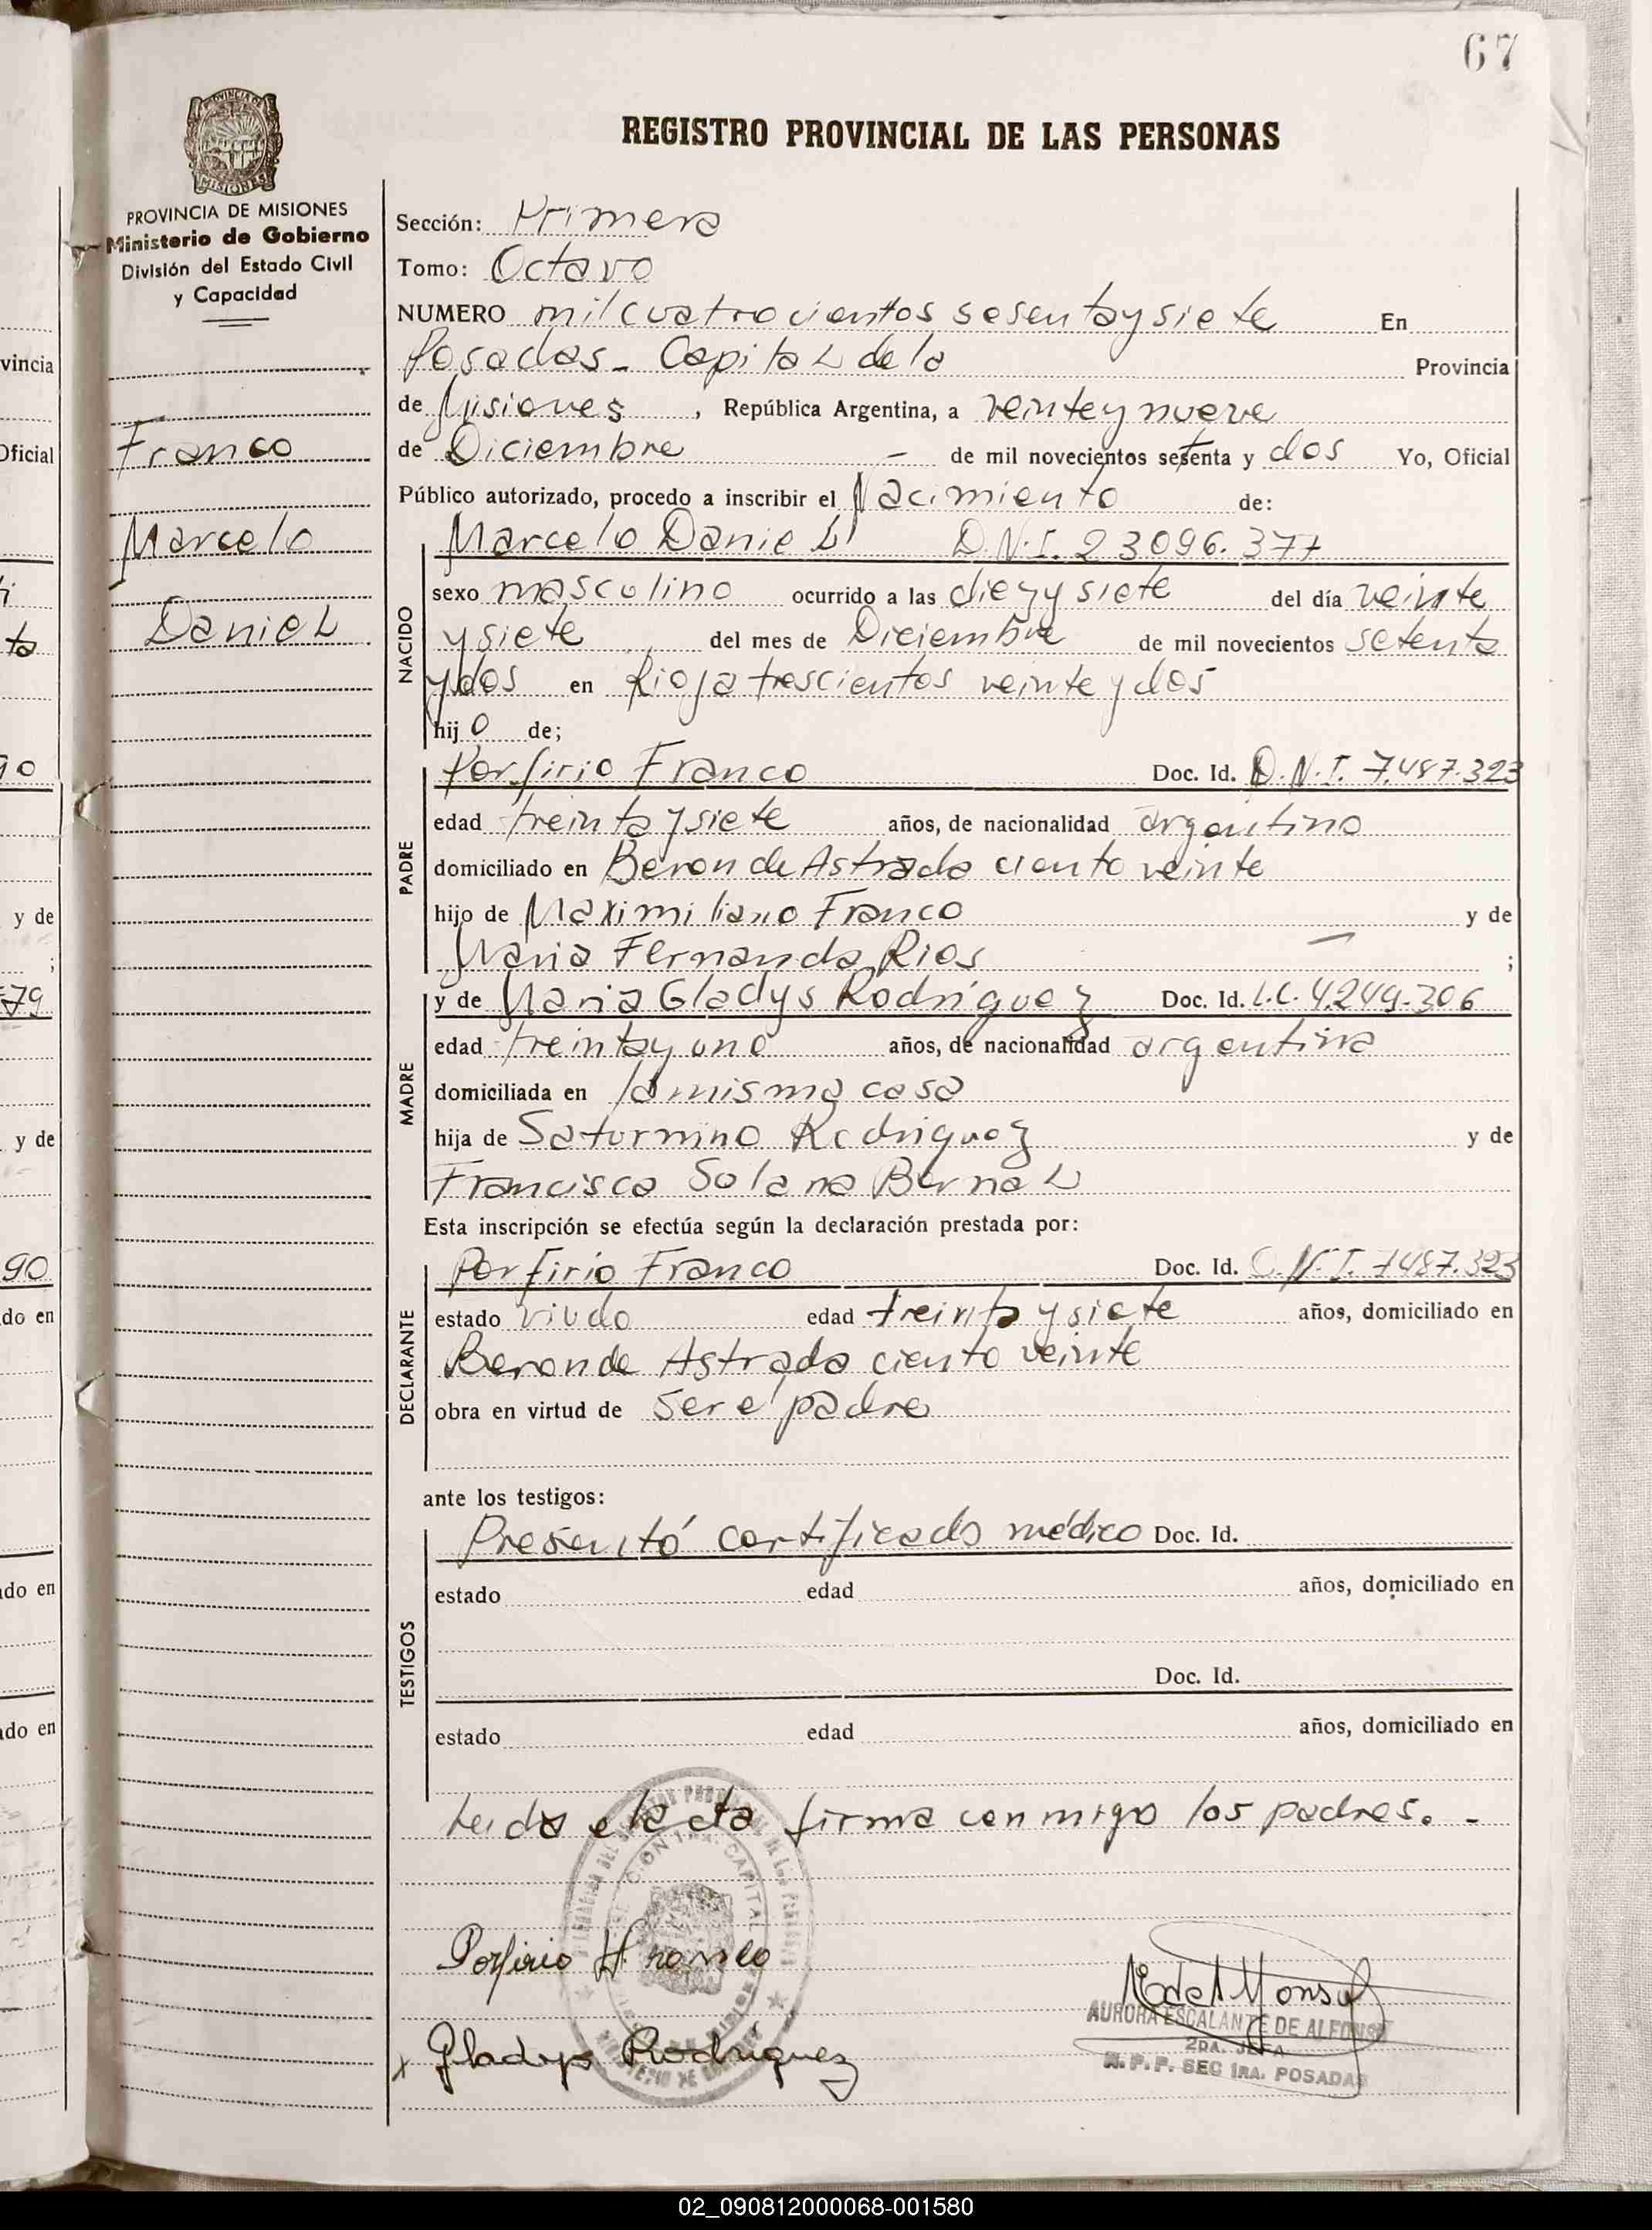 67
PROVINCIA DE MISIONES
Ministerio de Gobierno
División del Estado Civil
y Capacidad
Franco
Marcelo
Daniel
REGISTRO PROVINCIAL DE LAS PERSONAS
Sección: Primera
Tomo: Octavo
NUMERO mil cuatrocientos sesenta y siete En
Posadas - Capital de la Provincia
de Misiones, República Argentina, a veinte y nueve
de Diciembre - de mil novecientos setenta y dos Yo, Oficial
Público autorizado, procedo a inscribir el Nacimiento de:
Marcelo Daniel D.N.I. 23096.377
NACIDO
sexo mascolino ocurrido a las diez y siete del día veinte
y siete del mes de Diciembre de mil novecientos setenta
y dos en Rioja trescientos veinte y dos
hijo de;
PADRE
Porfirio Franco Doc. Id. D.N.I. 7.487.323
edad treinta y siete años, de nacionalidad argentino
domiciliado en Beron de Astrada ciento veinte
hijo de Maximiliano Franco y de
Maria Fernanda Rios - ;
MADRE
y de Maria Gladys Rodriguez Doc. Id. L.C. 4.249.306
edad treinta y uno años, de nacionalidad argentina
domiciliada en la misma casa
hija de Saturnino Rodriguez y de
Francisca Solana Bernal
Esta inscripción se efectúa según la declaración prestada por:
DECLARANTE
Porfirio Franco Doc. Id. D.N.I. 7487.323
estado viudo edad treinta y siete años, domiciliado en
Beron de Astrada ciento veinte
obra en virtud de ser e padre
ante los testigos:
TESTIGOS
Presentó certificado médico Doc. Id.
estado edad años, domiciliado en
Doc. Id.
estado edad años, domiciliado en
Leida el acta firma conmigo los padres. -
Porfirio Franco
AURORA ESCALANTE DE ALFONSO
2DA. JEFA
R.P.P. SEC 1RA. POSADAS
x Gladys Rodriguez
vincia
Oficial
ta
79
y de
y de
90
do en
do en
do en
02_090812000068-001580